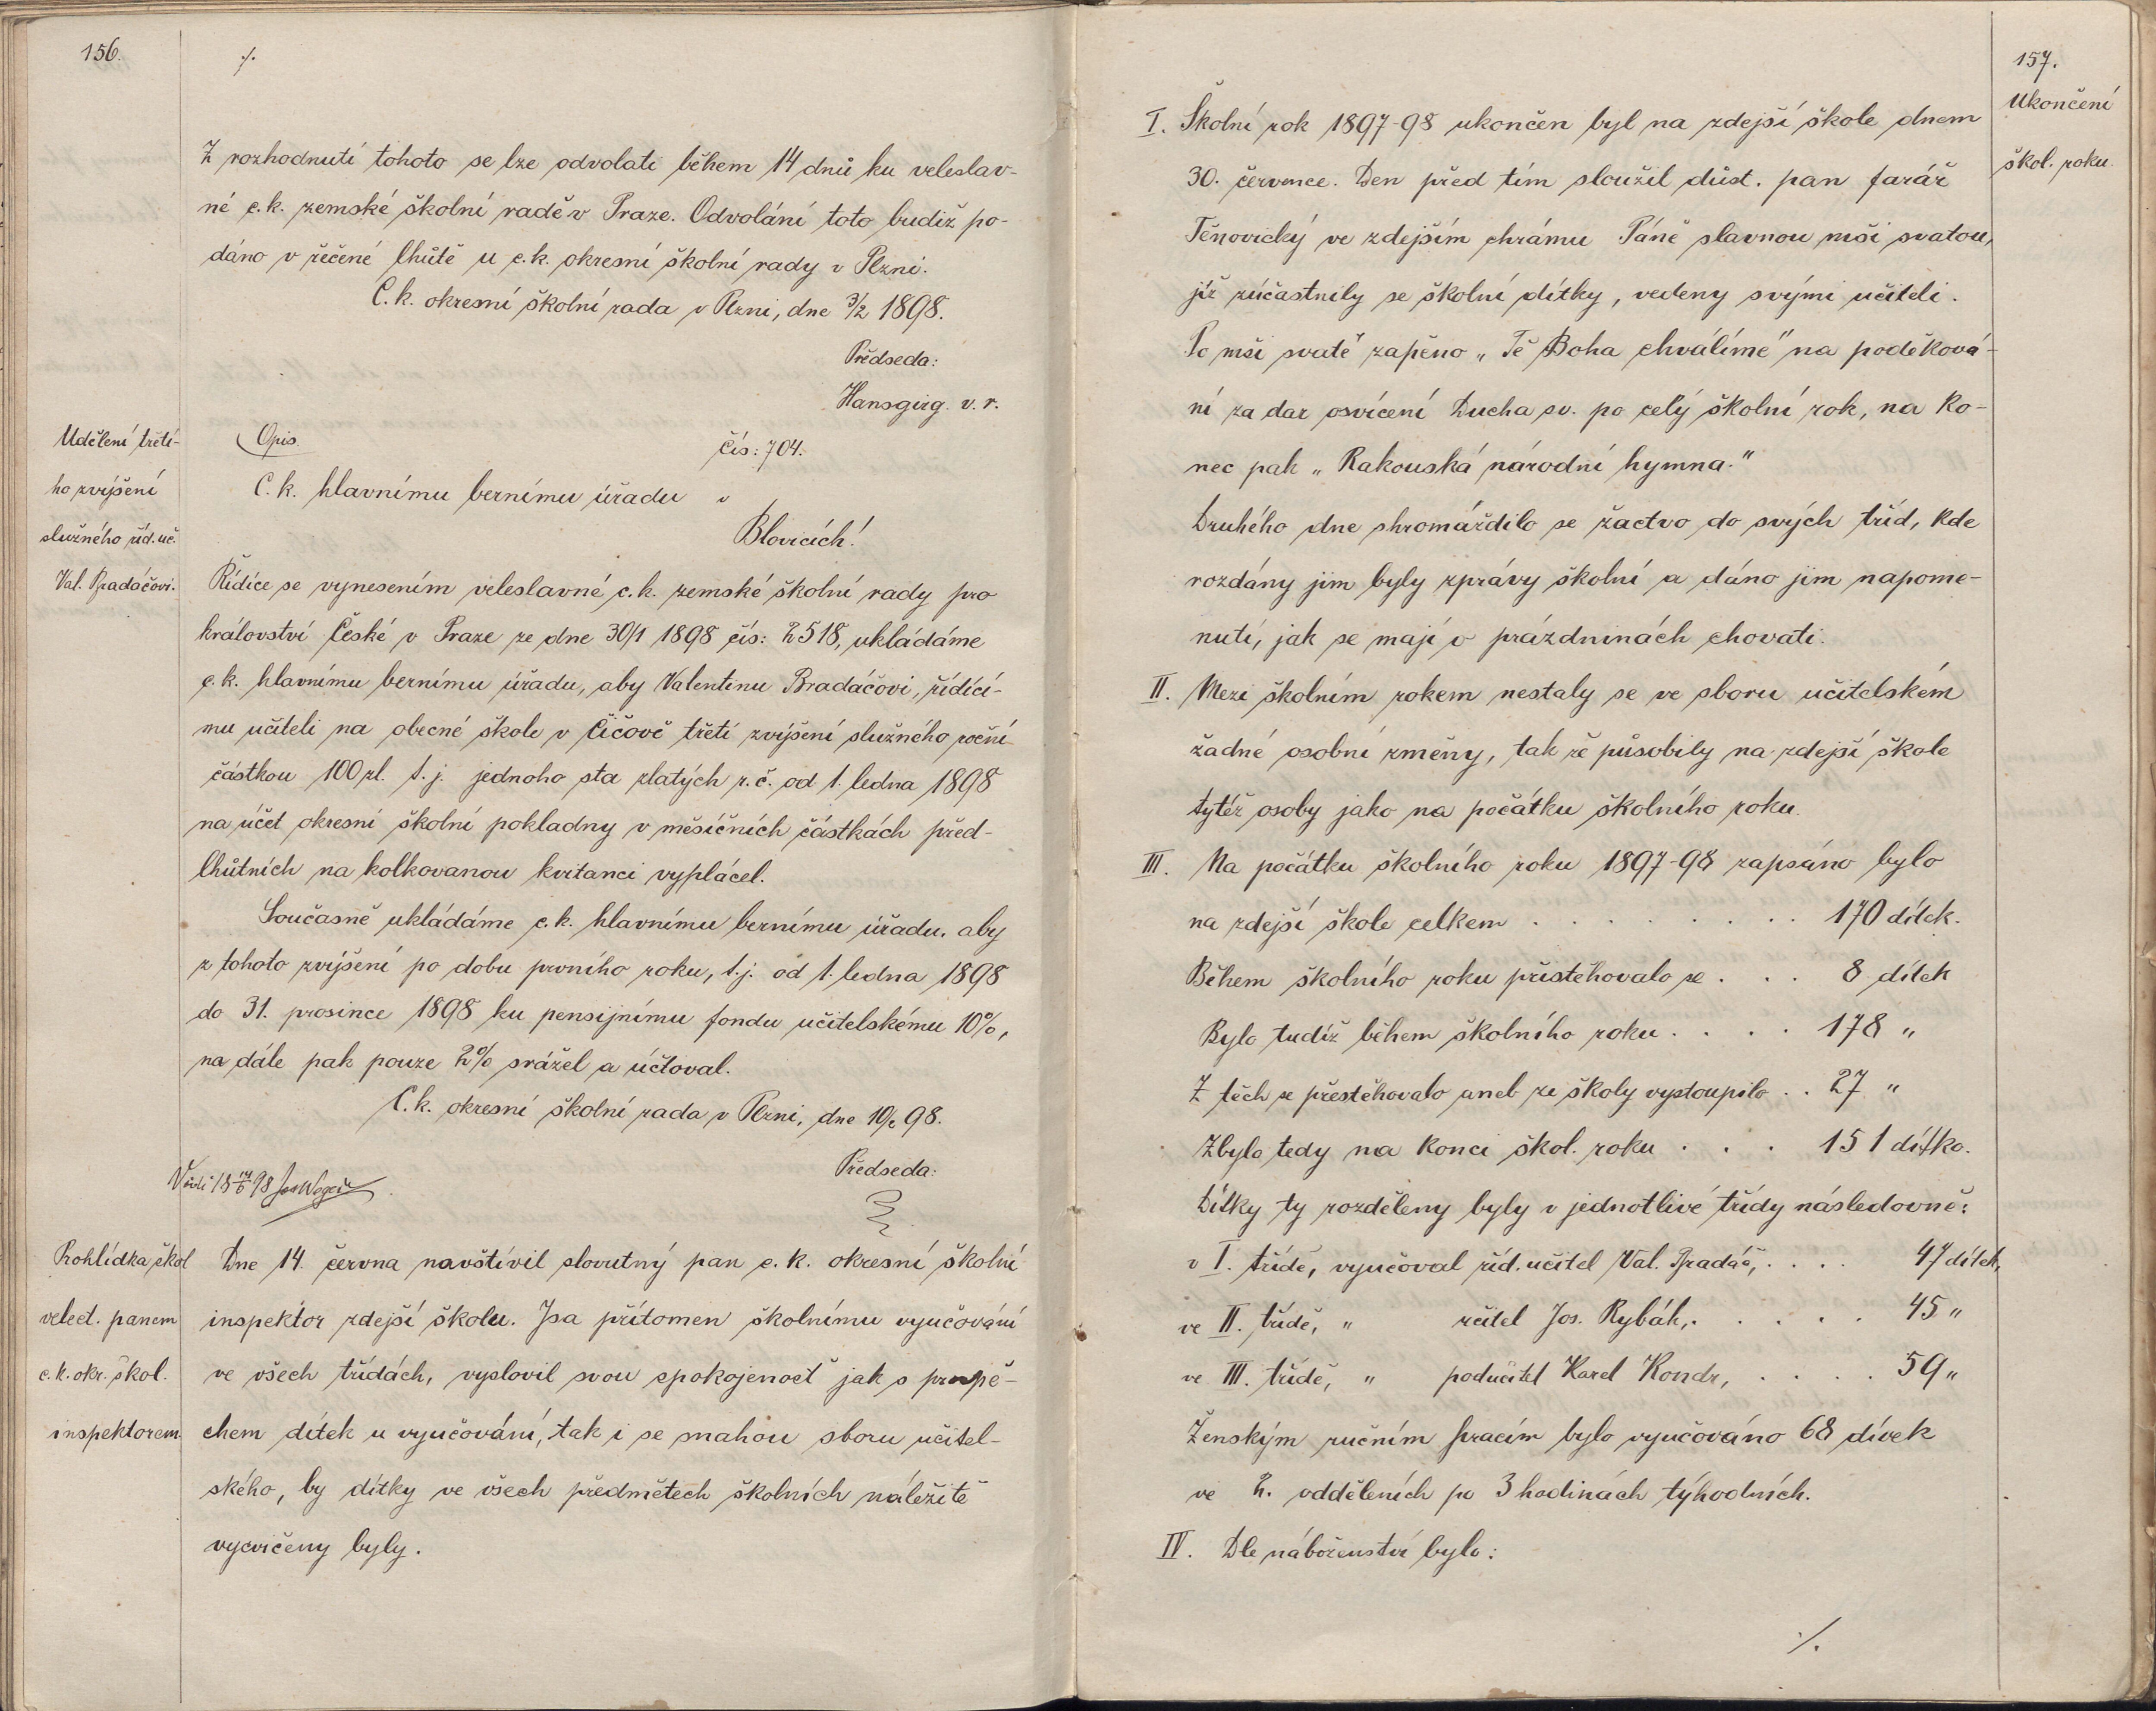 156.
./.
Z rozhodnutí tohoto se lze odvolati během 14 dnů ku veleslav-
né c.k. zemské školní radě v Praze. Odvolání toto budiž po-
dáno v řečené lhůtě u c.k. okresní školní rady v Plzni.
C.k. okresní školní rada v Plzni, dne 3/2 1898.
Předseda:
Hansgirg. v. r.
Udělení třetí-
ho zvýšení
služného říd. uč.
Val. Bradáčovi.
Opis.
čís: 704.
C. k. hlavnímu bernímu úřadu v
Blovicích!
Řídíce se vynesením veleslavné c.k. zemské školní rady pro
království České v Praze ze dne 30/1 1898 čís: 2518, ukládáme
c.k. hlavnímu bernímu úřadu, aby Valentinu Bradáčovi, řídící-
mu učiteli na obecné škole v Čičově třetí zvýšení služného roční
částkou 100 zl. t.j. jednoho sta zlatých r.č. od 1. ledna 1898
na účet okresní školní pokladny v měsíčních částkách před-
lhůtních na kolkovanou kvitanci vyplácel.
Současně ukládáme c.k. hlavnímu bernímu úřadu, aby
z tohoto zvýšení po dobu prvního roku, t.j. od 1. ledna 1898
do 31. prosince 1898 ku pensijnímu fondu učitelskému 10%,
na dále pak pouze 2% srážel a účtoval.
C.k. okresní školní rada v Plzni, dne 10/2 98.
Předseda:
14/6 98
Prohlídka škol
velect. panem
c.k. okr. škol.
inspektorem
Dne 14. června navštívil slovutný pan c. k. okresní školní
inspektor zdejší školu. Jsa přítomen školnímu vyučování
ve všech třídách, vyslovil svou spokojenosť jak s prospě-
chem dítek u vyučování, tak i se snahou sboru učitel-
ského, by dítky ve všech předmětech školních náležitě
vycvičeny byly.
157.
Ukončení
škol. roku.
I. Školní rok 1897-98 ukončen byl na zdejší škole dnem
30. července. Den před tím sloužil důst. pan farář
Těnovický ve zdejším chrámu Páně slavnou mši svatou,
již zúčastnily se školní dítky, vedeny svými učiteli.
Po mši svaté zapěno „Tě Boha chválíme" na poděková-
ní za dar osvícení Ducha sv. po celý školní rok, na ko-
nec pak „Rakouská národní hymna."
Druhého dne shromáždilo se žactvo do svých tříd, kde
rozdány jim byly zprávy školní a dáno jim napome-
nutí, jak se mají v prázdninách chovati.
II. Mezi školním rokem nestaly se ve sboru učitelském
žádné osobní změny, tak že působily na zdejší škole
tytéž osoby jako na počátku školního roku.
III. Na počátku školního roku 1897-98 zapsáno bylo
na zdejší škole celkem . . . . . . . . 170 dítek.
Během školního roku přistěhovalo se . . . 8 dítek
Bylo tudíž během školního roku . . . . 178 „
Z těch se přestěhovalo aneb ze školy vystoupilo . . 27 „
Zbylo tedy na konci škol. roku . . . 151 dítko.
Dítky ty rozděleny byly v jednotlivé třídy následovně:
v I. třídě, vyučoval říd. učitel Val. Bradáč, . . . . 47 dítek,
ve II. třídě, „ učitel Jos. Rybák, . . . . . 45 „
ve III. třídě, „ podučitel Karel Kondr, . . . . . 59 „
Ženským ručním pracím bylo vyučováno 68 dívek
ve 2. odděleních po 3 hodinách týhodních.
IV. Dle náboženství bylo:
./.